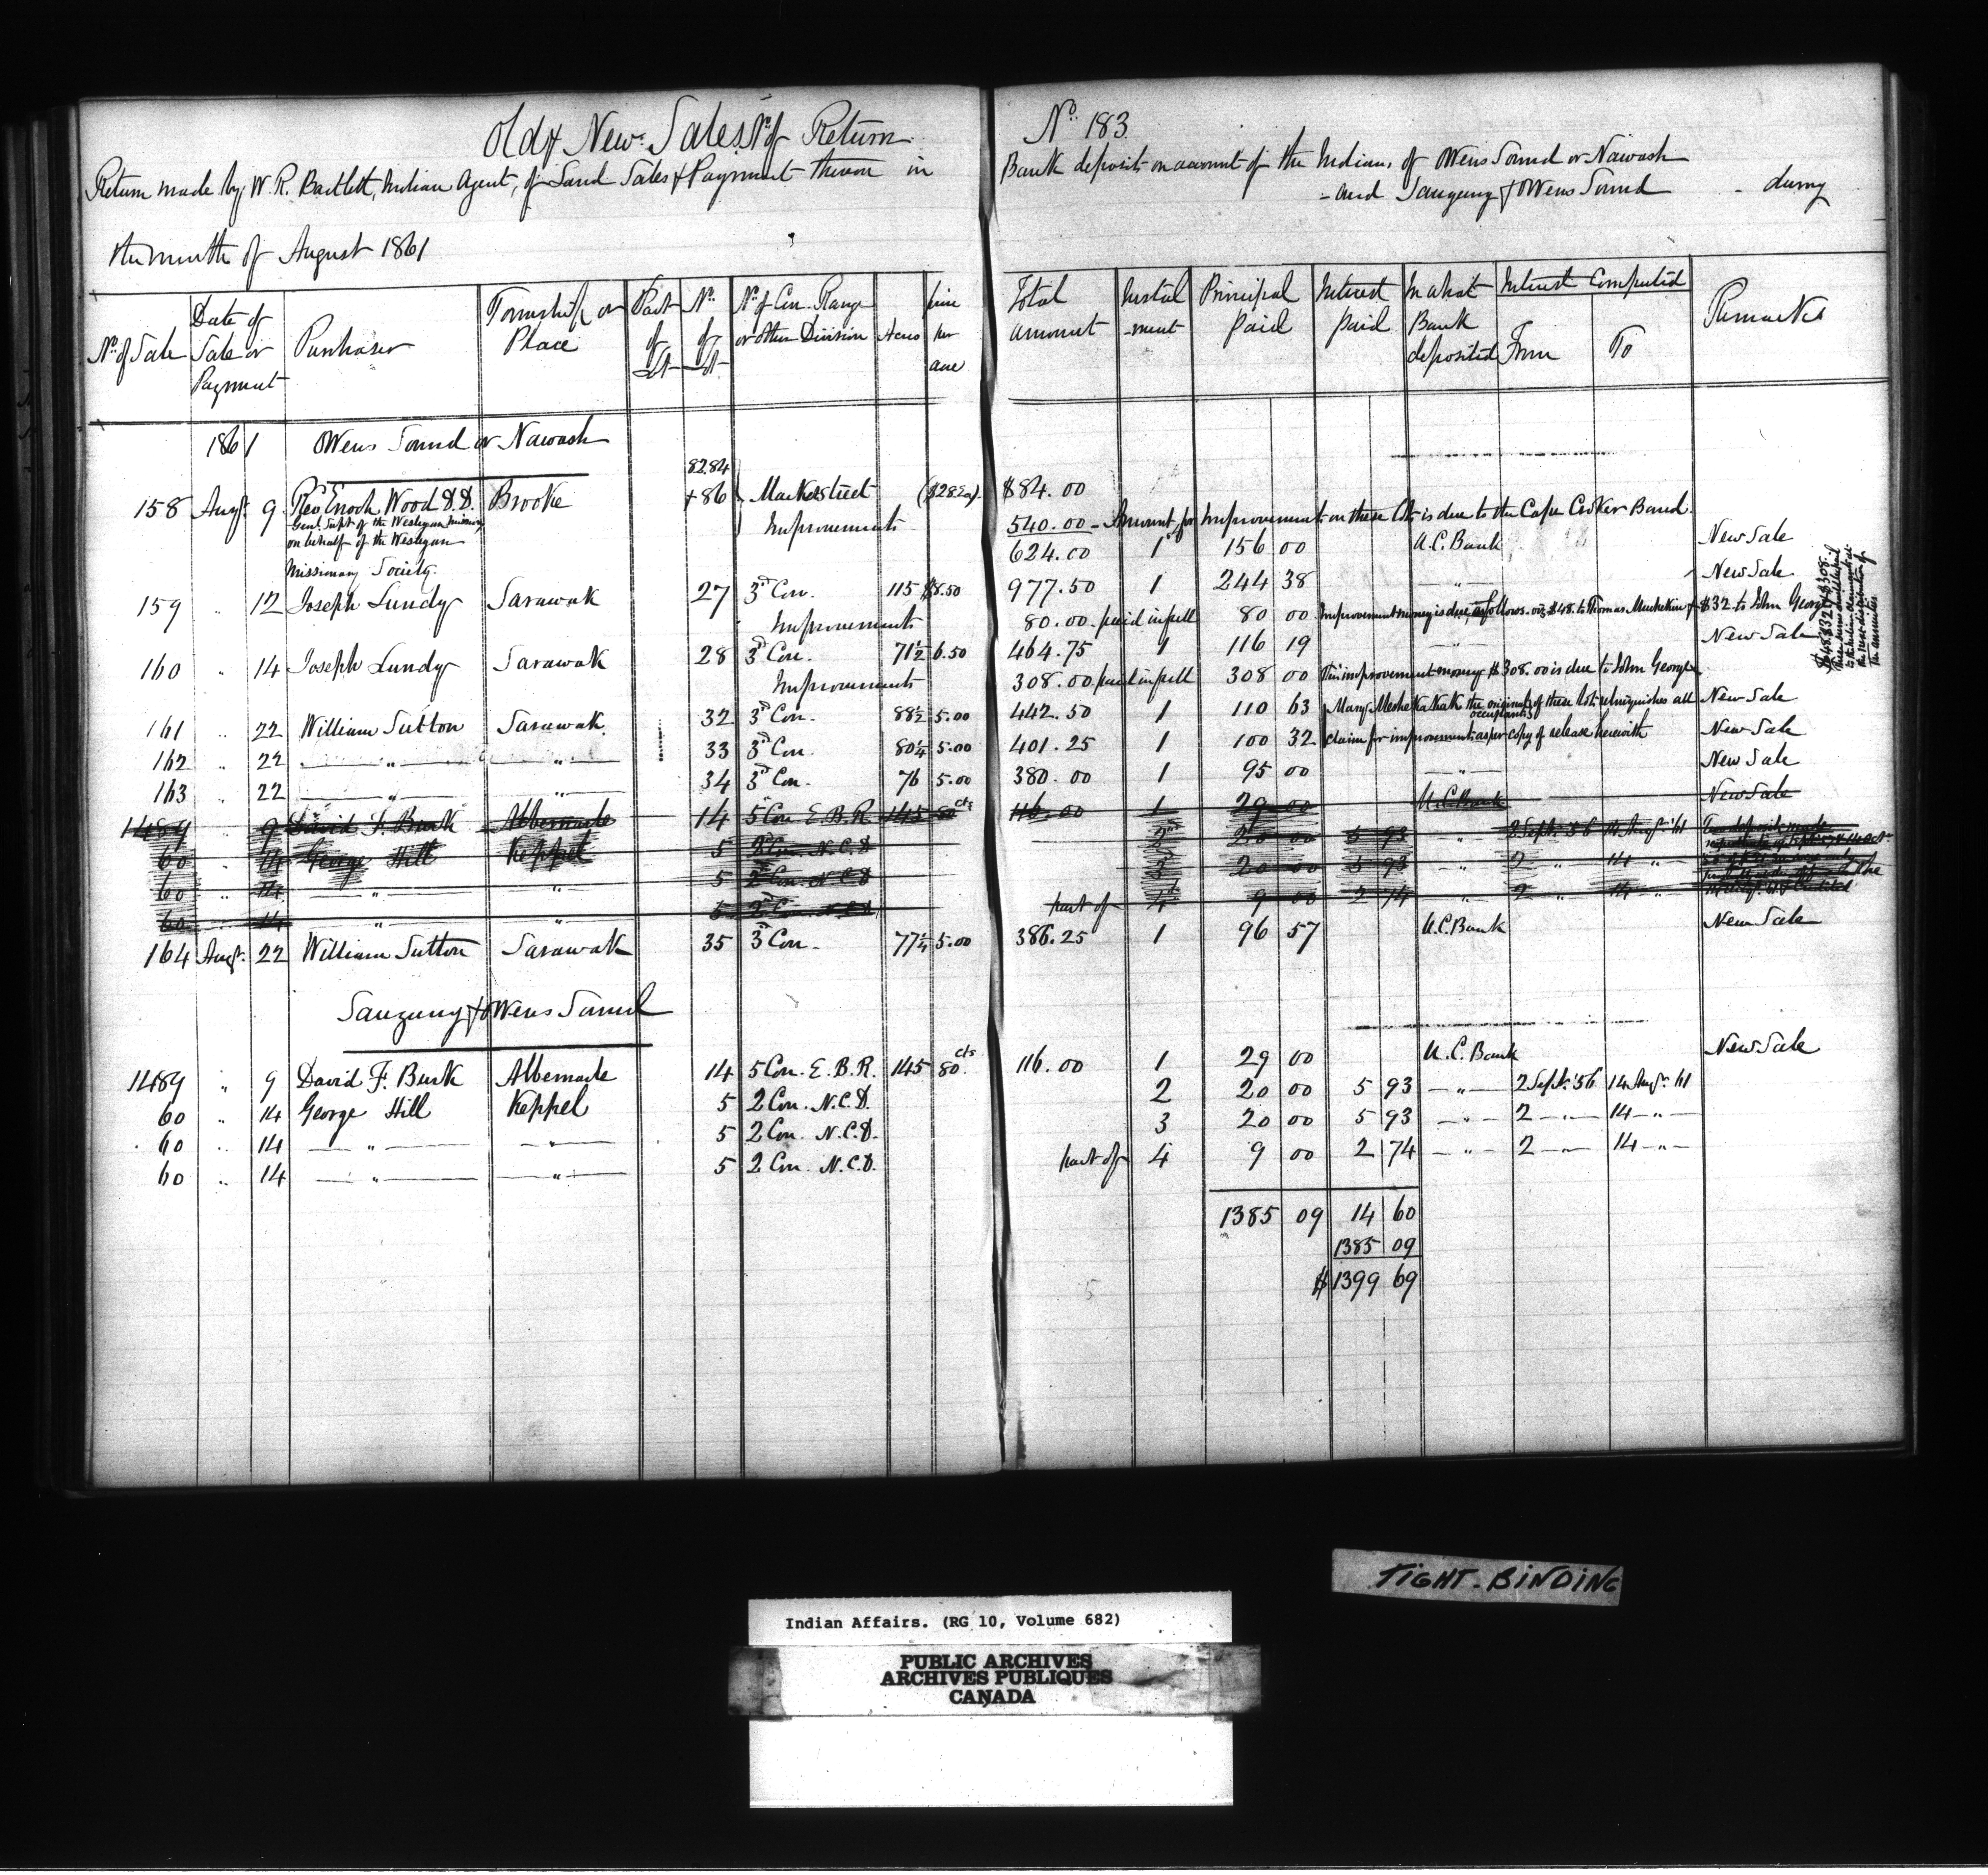 Old & New Sales, No of Return No 183
Return made by W. R. Bartlett, Indian Agent, of Land Sales & Payment thereon in Bank deposit on account of the Indians of Owens Sound or Nawash
- and Saugeeng & Owens Sound - during
the month of August 1861
No of Sale | Date of Sale or Payment | Purchaser | Township or Place | Part of Lot | No of Lot | No of Con. Range or Other Division | Acres | price per acre | Total amount | Instalment | Principal paid | Interest paid | In what Bank deposited | Interest Computed From | To | Remarks
1861 Owens Sound or Nawash
158 Augt. 9 Rev Enoch Wood D.D. Brooke 82.84 + 86 Market street ($28 ea). $84.00
Genl. Supt of the Wesleyan Missions
on behalf of the Wesleyan
Missionary Society
Improvements 540.00 - Amount for Improvement on these lots is due to the Cape Croker Band.
624.00 1 156 00 U.C. Bank New Sale
159 " 12 Joseph Lundy Sarawak 27 3rd Con. 115 $8.50 977.50 1 244 38 — " — New Sale
Improvements 80.00 - paid in full 80 00 Improvement money is due, as follows. viz $48. to Thomas $32 to John George
160 " 14 Joseph Lundy Sarawak 28 3rd Con. 71½ 6.50 464.75 1 116 19 — " — New Sale
Improvements 308.00 paid in full 308 00 This improvement money $308.00 is due to John George
161 " 22 William Sutton Sarawak. 32 3rd Con. 88½ 5.00 442.50 1 110 63 Mary the original occupants of these lots relinquishes all New Sale
162 " 22 — " — — " — 33 3rd Con. 80¼ 5.00 401.25 1 100 32 claim for improvements as per copy of release herewith New Sale
163 " 22 — " — — " — 34 3rd Con. 76 5.00 380.00 1 95 00 — " — New Sale
1489 " 9 David F. Burk Albemarle 14 5 Con E.B.R. 145 80 cts 116.00 1 29 00 U.C. Bank New Sale
60 " 14 George Hill Keppel 5 2 Con. N.C.D 2nd 20 00 5 93 " 2 Sept. '56 14 Augt. '61
60 " 14 " " 5 2 Con. N.C.D 3 20 00 5 93 " 2 " 14 "
60 " 14 " " 5 2 Con. N.C.D part of 4 9 00 2 74 " 2 " 14 "
164 Augt. 22 William Sutton Sarawak 35 3rd Con. 77¼ 5.00 386.25 1 96 57 U.C. Bank New Sale
Saugeeng & Owens Sound
1489 " 9 David F. Burk Albemarle 14 5 Con. E.B.R. 145 80 cts 116.00 1 29 00 U.C. Bank New Sale
60 " 14 George Hill Keppel 5 2 Con. N.C.D. 2 20 00 5 93 — " — 2 Sept. '56 14 Augt. '61
60 " 14 — " — — " — 5 2 Con. N.C.D. 3 20 00 5 93 — " — 2 — " — 14 — " —
60 " 14 — " — — " — 5 2 Con. N.C.D. part of 4 9 00 2 74 — " — 2 — " — 14 — " —
1385 09 14 60
1385 09
$1399 69
TIGHT-BINDING
Indian Affairs. (RG 10, Volume 682)
PUBLIC ARCHIVES
ARCHIVES PUBLIQUES
CANADA